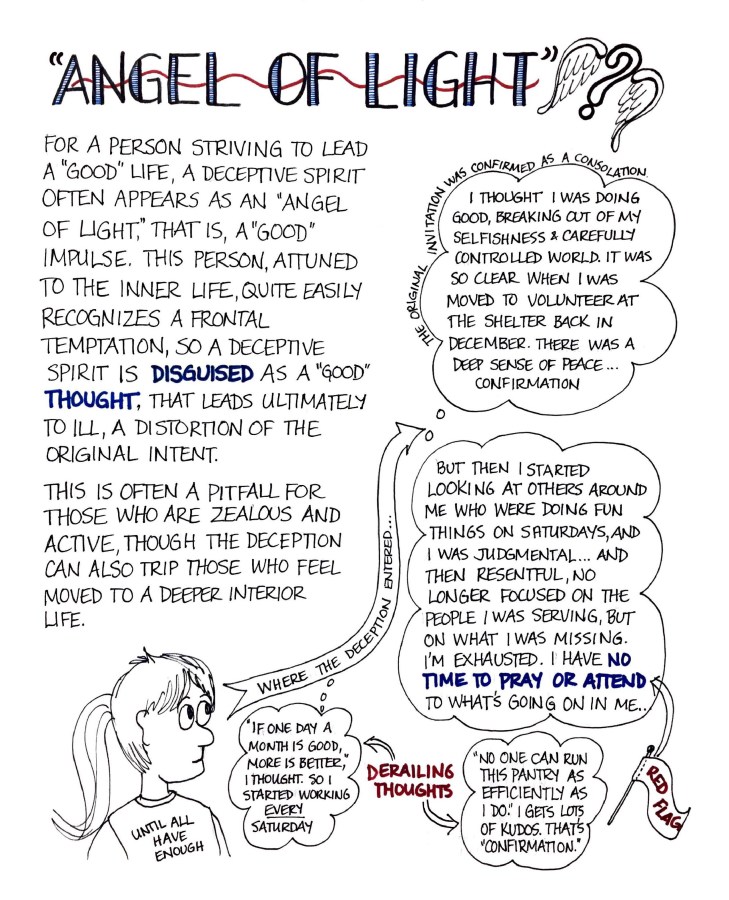 "ANGEL OF LIGHT"?
FOR A PERSON STRIVING TO LEAD
A "GOOD" LIFE, A DECEPTIVE SPIRIT
OFTEN APPEARS AS AN "ANGEL
OF LIGHT," THAT IS, A "GOOD"
IMPULSE. THIS PERSON, ATTUNED
TO THE INNER LIFE, QUITE EASILY
RECOGNIZES A FRONTAL
TEMPTATION, SO A DECEPTIVE
SPIRIT IS DISGUISED AS A "GOOD"
THOUGHT, THAT LEADS ULTIMATELY
TO ILL, A DISTORTION OF THE
ORIGINAL INTENT.
THIS IS OFTEN A PITFALL FOR
THOSE WHO ARE ZEALOUS AND
ACTIVE, THOUGH THE DECEPTION
CAN ALSO TRIP THOSE WHO FEEL
MOVED TO A DEEPER INTERIOR
LIFE.
THE ORIGINAL INVITATION WAS CONFIRMED AS A CONSOLATION.
I THOUGHT I WAS DOING
GOOD, BREAKING OUT OF MY
SELFISHNESS & CAREFULLY
CONTROLLED WORLD. IT WAS
SO CLEAR WHEN I WAS
MOVED TO VOLUNTEER AT
THE SHELTER BACK IN
DECEMBER. THERE WAS A
DEEP SENSE OF PEACE...
CONFIRMATION
WHERE THE DECEPTION ENTERED...
BUT THEN I STARTED
LOOKING AT OTHERS AROUND
ME WHO WERE DOING FUN
THINGS ON SATURDAYS, AND
I WAS JUDGMENTAL... AND
THEN RESENTFUL, NO
LONGER FOCUSED ON THE
PEOPLE I WAS SERVING, BUT
ON WHAT I WAS MISSING.
I'M EXHAUSTED. I HAVE NO
TIME TO PRAY OR ATTEND
TO WHAT'S GOING ON IN ME...
UNTIL ALL
HAVE
ENOUGH
"IF ONE DAY A
MONTH IS GOOD,
MORE IS BETTER,"
I THOUGHT. SO I
STARTED WORKING
EVERY
SATURDAY
DERAILING
THOUGHTS
"NO ONE CAN RUN
THIS PANTRY AS
EFFICIENTLY AS
I DO." I GETS LOTS
OF KUDOS. THAT'S
"CONFIRMATION."
RED FLAG